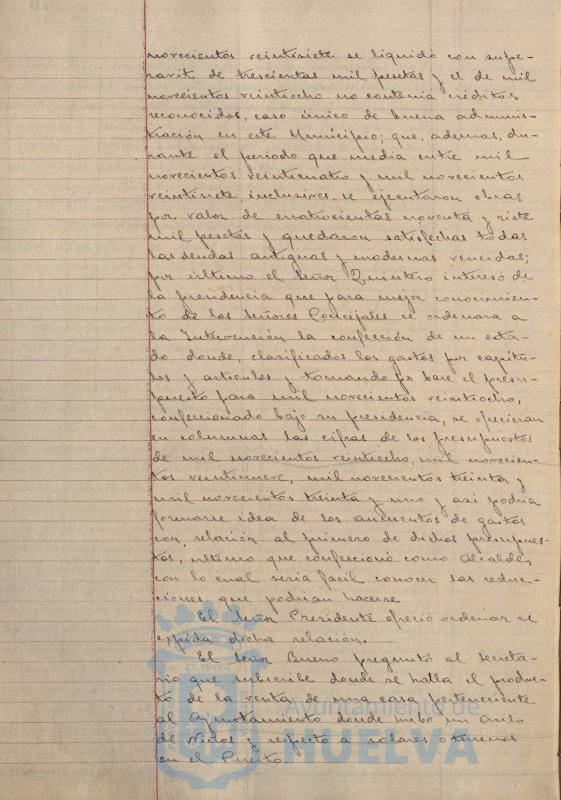 novecientos veintisiete se liquidó con supe-
ravit de trescientas mil pesetas y el de mil
novecientos veintiocho no contenia créditos
reconocidos, caso único de buena adminis-
tración en este Municipio; que, ademas, du-
rante el periodo que media entre mil
novecientos veinticuatro y mil novecientos
veintisiete inclusives se ejecutaron obras
por valor de cuatrocientas noventa y siete
mil pesetas y quedaron satisfechas todas
las deudas antiguas y modernas vencidas;
por último el señor Quintero intereso de
la presidencia que para mejor conocimien-
to de los señores Concejales se ordenara a
la Intervención la confección de un esta-
do donde, clarificados los gastos por capítu-
los y articulos y tomando por base el presu-
puesto para mil novecientos veintiocho,
confeccionado bajo su presidencia, se ofrecieran
en columnas las cifras de los presupuestos
de mil novecientos veintiocho, mil novecien-
tos veintinueve, mil novecientos treinta y
mil novecientos treinta y uno y asi podria
formarse idea de los aumentos de gastos
con relación al primero de dichos presupues-
tos, ultimo que confeccionó como Alcalde,
con lo cual seria facil conocer las reduc-
ciones que podrian hacerse
El señor Presidente ofreció ordenar se
expida dicha relación.
El señor Bueno preguntó al Secreta-
rio que subscribe donde se halla el produc-
to de la venta de una casa perteneciente
al Ayuntamiento donde hubo un asilo
de Niños y respecto a solares o terrenos
en el Puerto
ET TERRAE
Ayuntamiento de
HUELVA